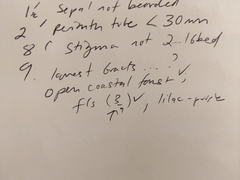 1'. Sepal not bearded
2 perianth tube < 30mm
8' Stigma not 2-lobed
9. lowest bracts ... ?
open coastal forest ✓
fls ✓, lilac-purple